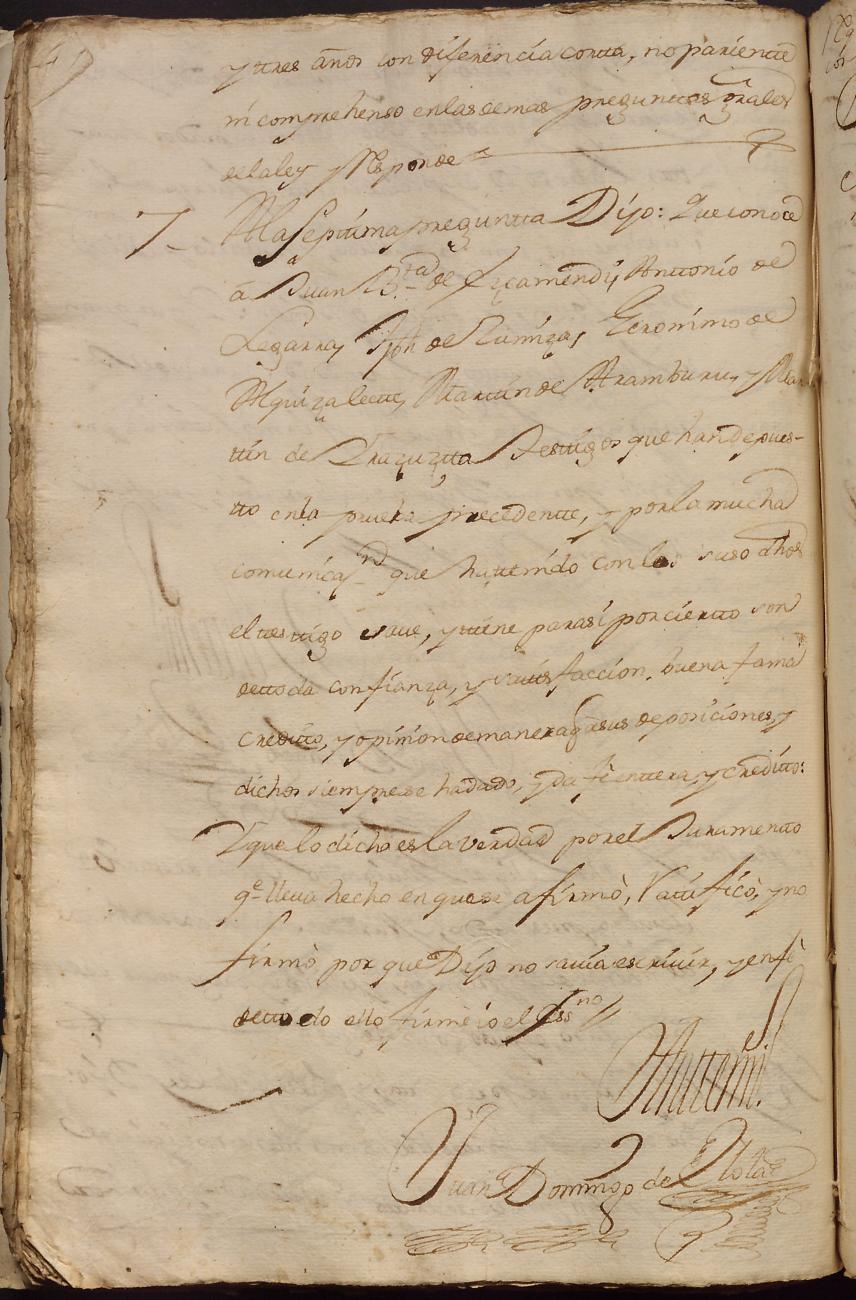 y ttres años con diferencia cortta, no parientte
ni comprehenso en las demas preguntas grales
de la ley y Responde
7 A la septtima preguntta Dijo: Que conoce
á Juan Btta de Ezcamendi, Anttonio de
Legarra, Jph de Zuniga, Geronimo de
Alquizalette, Marttin de Aramburu, y Mar
ttin de Yrazuztta Testtigos que han depues-
tto en la prueba precedentte, y por la mucha
comunicazn que ha ttenido con los suso dhos
el testtigo save, y ttiene para si por cierto son
de ttoda confianza, y sattisfaccion, buena fama
creditto, y opinion de manera q a sus deposiciones, y
dichos siempre se ha dado, y da fè enttera, y creditto:
Y que lo dicho es la verdad por el Juramentto
qe lleva hecho en que se afirmò, Rattificò, y no
firmò por que Dijo no savia escrivir, y en fè
de ttodo ello firmè io el Essno
Antte mi
Juan Domingo de